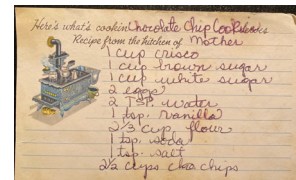 Here's what's cookin' Chocolate Chip Cookies
Recipe from the kitchen of Mother
1 cup crisco
1 cup brown sugar
1 cup white sugar
2 eggs
2 tsp. water
1 tsp. vanilla
2 1/3 cup flour
1 tsp. soda
1 tsp. salt
2 1/2 cups choc chips